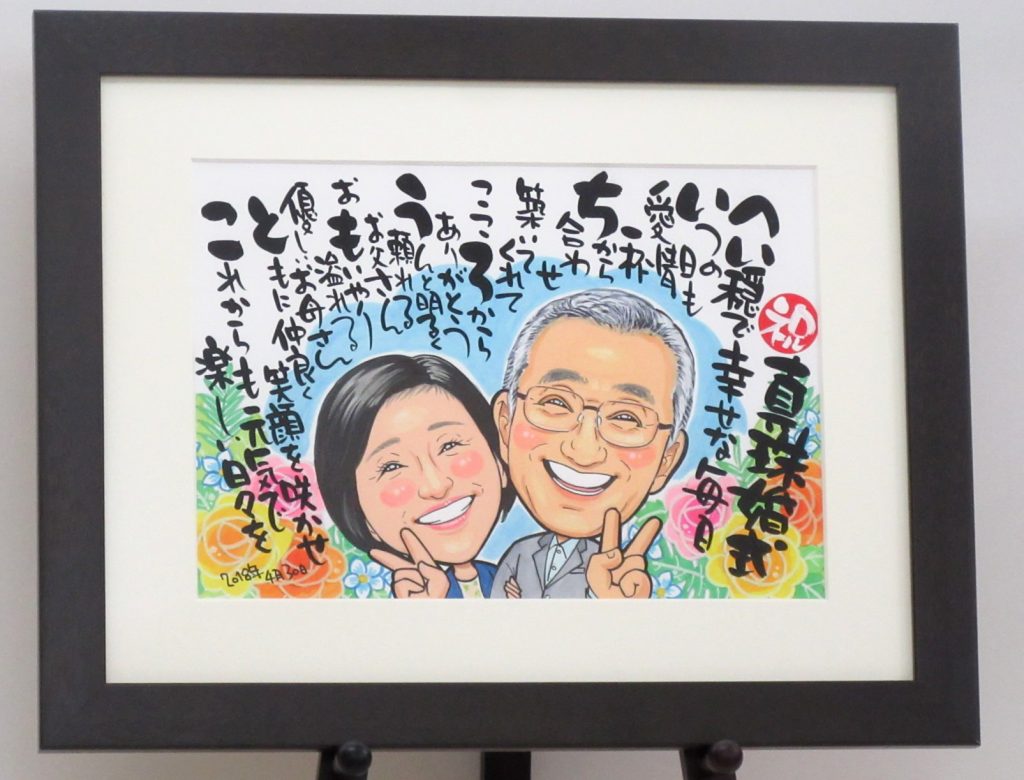 祝
真珠婚式
へい穏で幸せな毎日
いつの日も
愛情一杯
ちから
合わせ
築いて
くれて
こころから
ありがとう
うんと明るく
頼れる
お父さん
おもいやり
溢れる
優しいお母さん
ともに仲良く
笑顔を咲かせ
これからも元気で
楽しい日々を
2018年4月30日